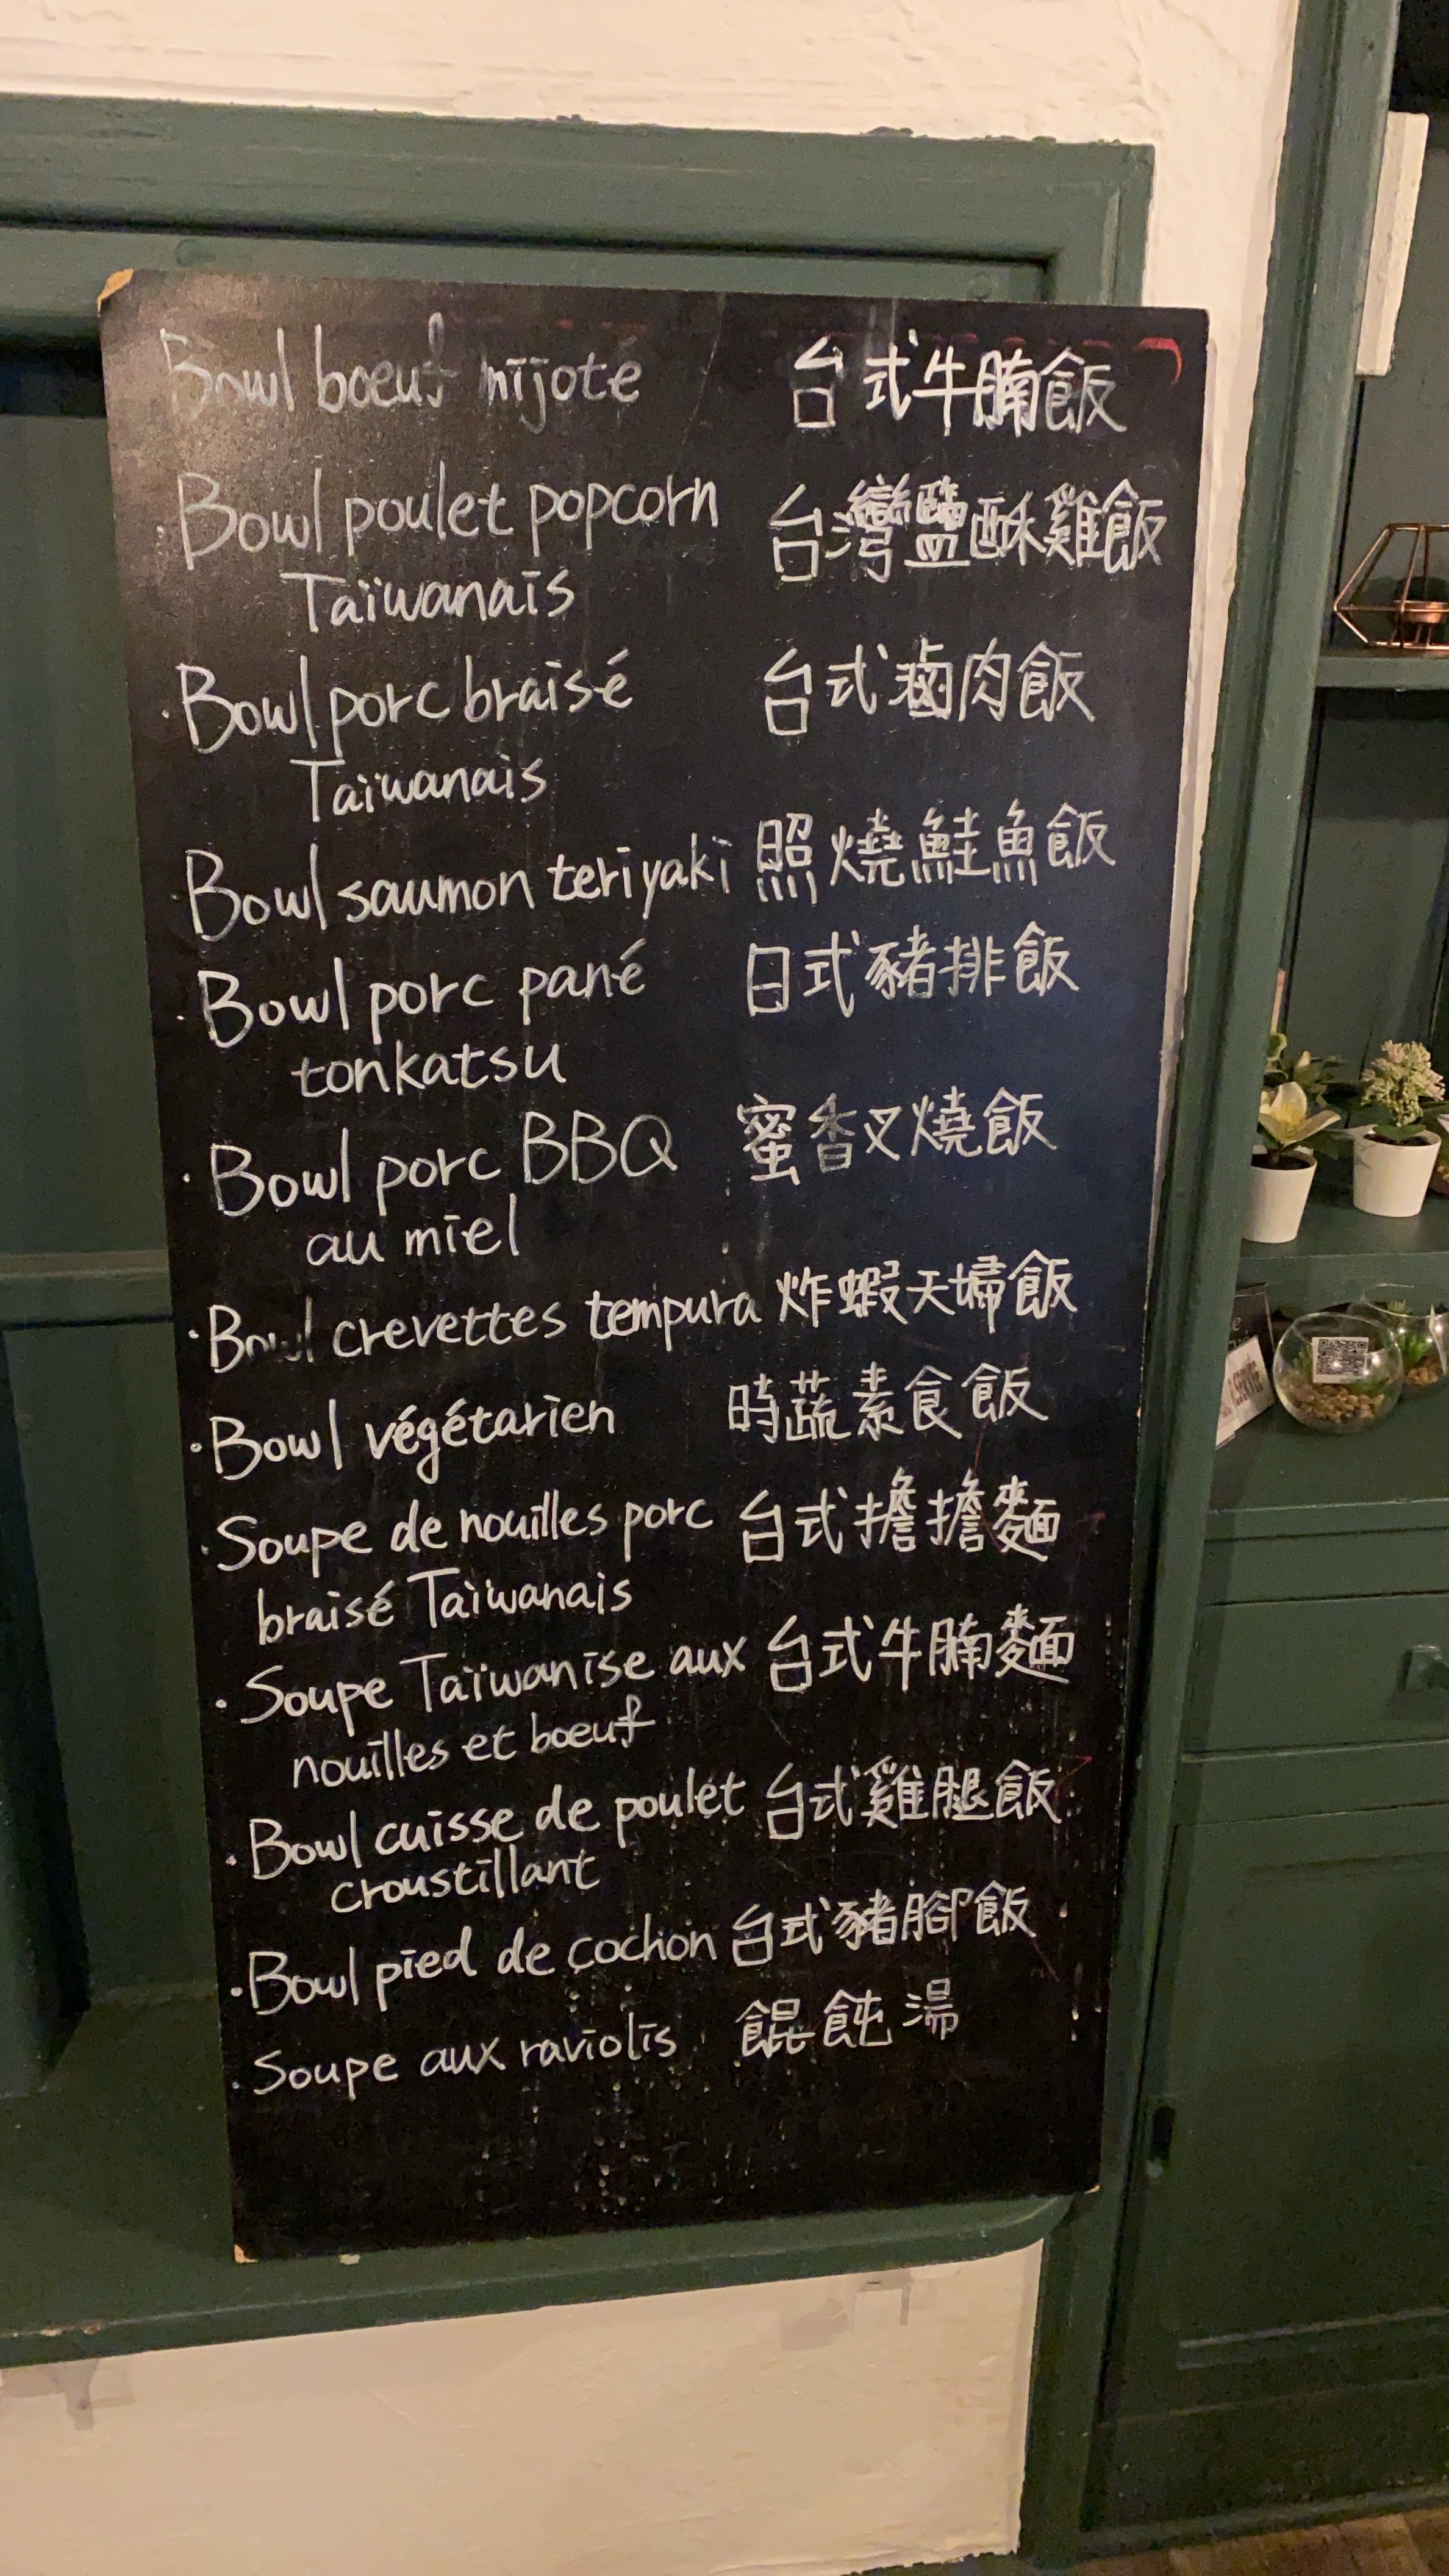 Bowl boeuf mijoté 台式牛腩飯
· Bowl poulet popcorn 台灣鹽酥雞飯
Taïwanais
· Bowl porc braisé 台式滷肉飯
Taïwanais
· Bowl saumon teriyaki 照燒鮭魚飯
· Bowl porc pané 日式豬排飯
tonkatsu
· Bowl porc BBQ 蜜香叉燒飯
au miel
· Bowl crevettes tempura 炸蝦天婦飯
· Bowl végétarien 時蔬素食飯
· Soupe de nouilles porc 台式擔擔麵
braisé Taïwanais
· Soupe Taïwanise aux 台式牛腩麵
nouilles et boeuf
· Bowl cuisse de poulet 台式雞腿飯
croustillant
· Bowl pied de cochon 台式豬腳飯
· Soupe aux raviolis 餛飩湯